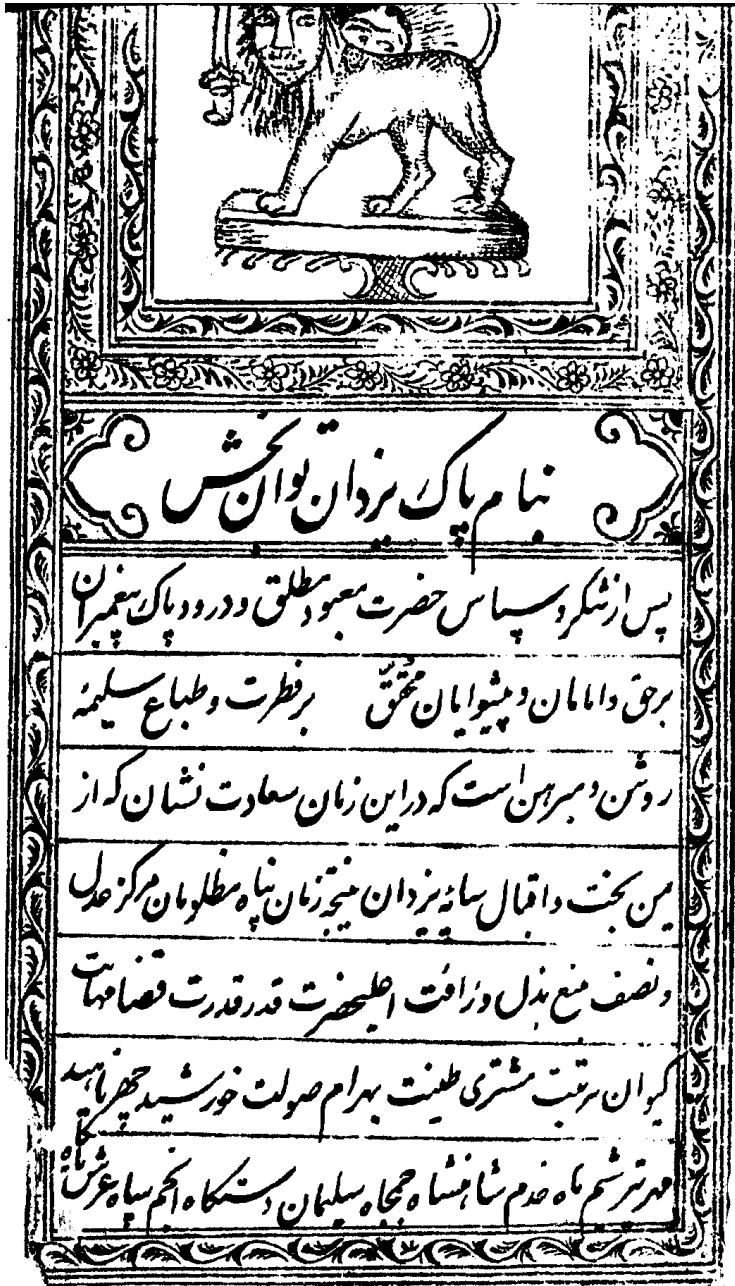 بنام پاک یزدان توان بخش
پس از شکر و سپاس حضرت معبود مطلق و درود پاک پیغمبران
بر حق و امامان و پیشوایان محقّق بر فطرت و طباع سلیمه
روشن و مبرهن است که در این زمان سعادت نشان که از
یمن بخت و اقبال سایهٔ یزدان نتیجه زمان پناه مظلومان مرکز عدل
و نصف منبع بذل و رافت اعلیحضرت قدر قدرت قضا مهابت
کیوان مرتبت مشتری طینت بهرام صولت خورشید چهر ناهید
مهر تیر شیم ماه خدم شاهنشاه جمجاه سلیمان دستگاه انجم سپاه عرش